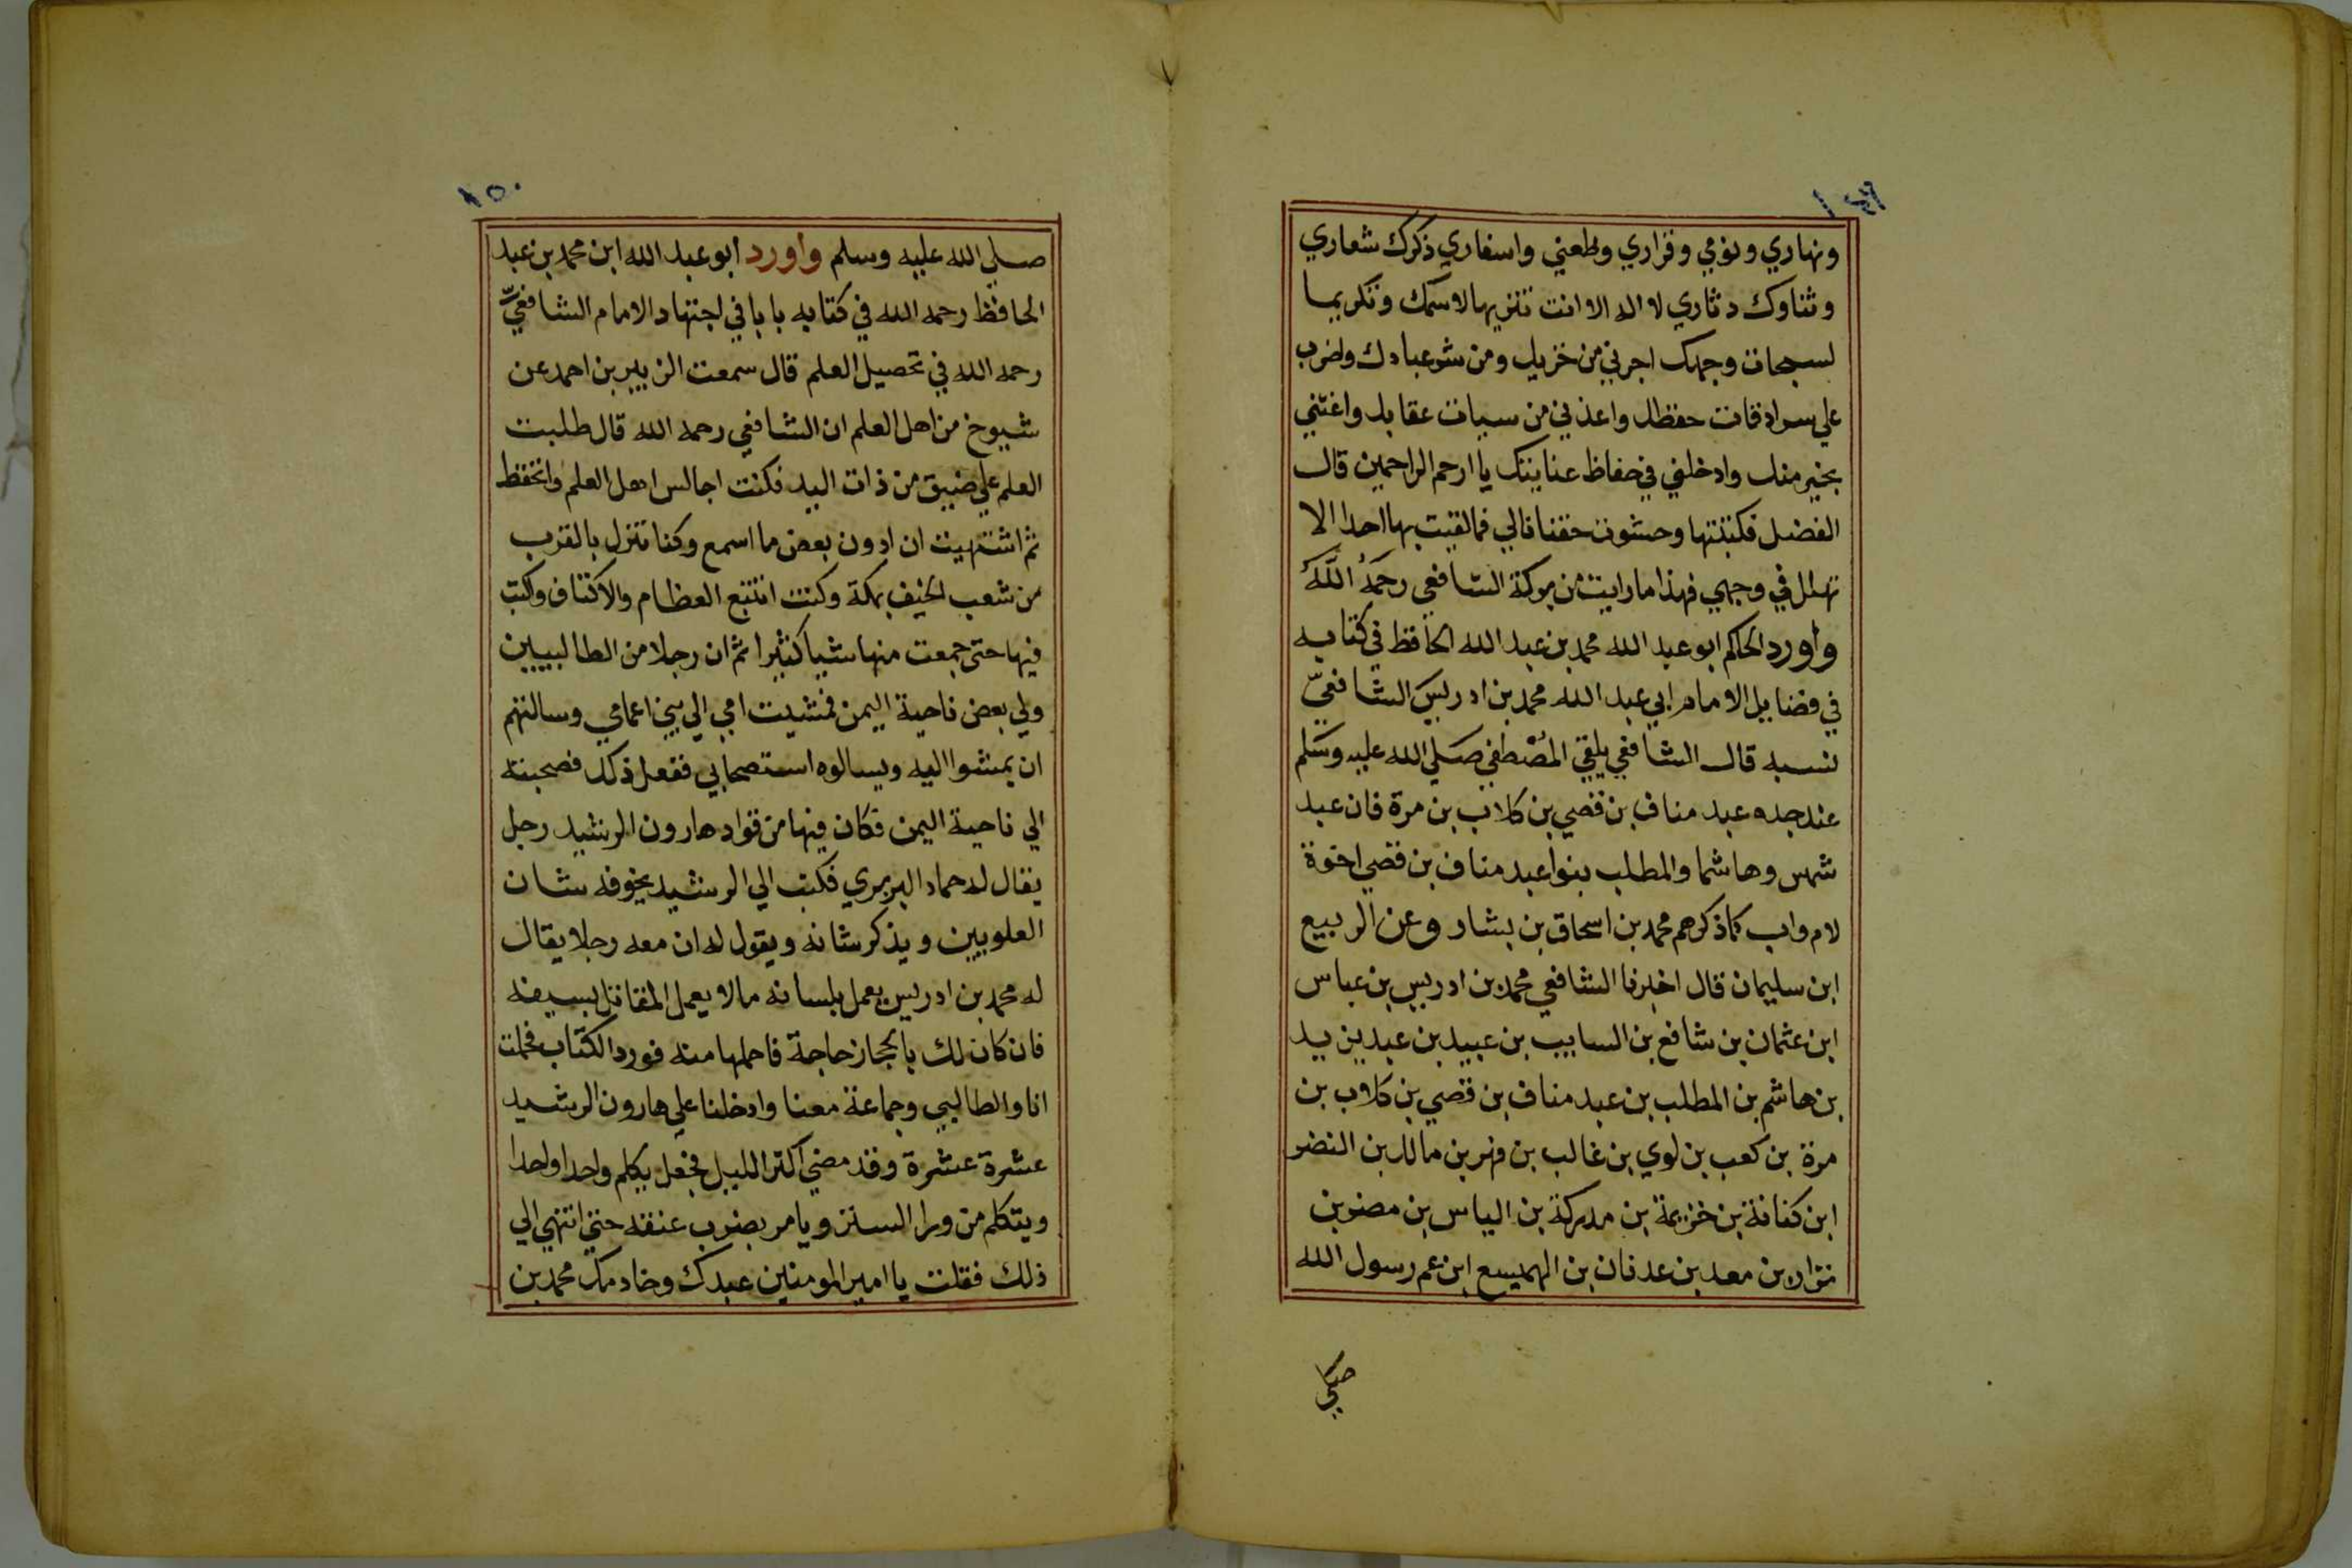 ١٤٩
ونهاري ونومي وقراري وطعني واسفاري ذكرك شعاري
وثناوك دثاري لا اله الا انت تنزيها لاسمك وتكريما
لسبحات وجهك اجرني من خزيك ومن شر عبادك واضرب
علي سرادقات حفظك واعذني من سيات عقابك واغثني
بخير منك وادخلني في حفاظ عنايتك يا ارحم الراحمين قال
الفضل فكتبتها وحشوت خفتا فالي فما لقيت بها احدا الا
تهلل في وجهي فهذا ما رايت من بركة الشافعي رحمه الله
وأورد الحاكم ابو عبد الله محمد بن عبد الله الحافظ في كتابه
في فضايل الامام ابي عبد الله محمد بن ادريس الشافعيّ
نسبه قال الشافعي يلقي المصطفي صلي الله عليه وسلم
عند جده عبد مناف بن قصي بن كلاب بن مرة فان عبد
شمس وهاشما والمطلب بنوا عبد مناف بن قصي اخوة
لام واب كما ذكرهم محمد بن اسحاق بن بشار وعن الربيع
ابن سليمان قال اخبرنا الشافعي محمد بن ادريس بن عباس
ابن عثمان بن شافع بن السايب بن عبيد بن عبد يزيد
بن هاشم بن المطلب بن عبد مناف بن قصي بن كلاب بن
مرة بن كعب بن لوي بن غالب بن فهر بن مالك بن النضر
ابن كنانة بن خزيمة بن مدركة بن الياس بن مضر بن
نزار بن معد بن عدنان بن الهميسع ابن عم رسول الله
صلي
١٥٠
صلي الله عليه وسلم وأورد ابو عبد الله ابن محمد بن عبد
الحافظ رحمه الله في كتابه بابا في اجتهاد الامام الشافعيّ
رحمه الله في تحصيل العلم قال سمعت الزبير بن احمد عن
شيوخ من اهل العلم ان الشافعي رحمه الله قال طلبت
العلم علي ضيق من ذات اليد فكنت اجالس اهل العلم واتحفظ
ثم اشتهيت ان ادون بعض ما اسمع وكنا ننزل بالقرب
من شعب الخيف بمكة وكنت اتتبع العظام والاكتاف واكتب
فيها حتى جمعت منها شيا كثيرا ثم ان رجلا من الطالبيين
ولي بعض ناحية اليمن فمشيت امي الي بني اعمامي وسالتهم
ان يمشوا اليه ويسالوه استصحابي ففعل ذلك فصحبته
الي ناحية اليمن فكان فيها من قواد هارون الرشيد رجل
يقال له حماد البربري فكتب الي الرشيد يخوفه شان
العلويين ويذكر شانه ويقول له ان معه رجلا يقال
له محمد بن ادريس يعمل بلسانه ما لا يعمل المقاتل بسيفه
فان كان لك بالحجاز حاجة فاحملها منه فورد الكتاب فحملت
انا والطالبي وجماعة معنا وادخلنا علي هارون الرشيد
عشرة عشرة وقد مضي اكثر الليل فجعل يكلم واحدا واحدا
ويتكلم من ورا الستر ويامر بضرب عنقه حتي انتهي الي
ذلك فقلت يا امير المومنين عبدك وخادمك محمد بن